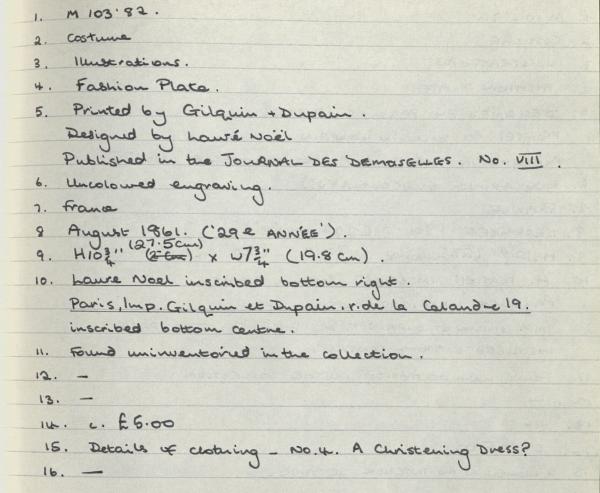 1. M 103'82.
2. Costume
3. Illustrations.
4. Fashion Plate.
5. Printed by Gilquin + Dupain.
Designed by Lauré Noël
Published in the JOURNAL DES DEMOSELLES. No. VIII.
6. Uncoloured engraving.
7. France
8 August 1861. ('29e ANNÉE').
(27.5cm)
9. H10¾" x W7¾" (19.8cm).
10. Laure Noel inscribed bottom right.
Paris, Imp. Gilquin et Dupain. r. de la Calandre 19.
inscribed bottom centre.
11. Found uninventoried in the collection.
12. —
13. —
14. c. £5.00
15. Details of clothing - No.4. A Christening Dress?
16. —